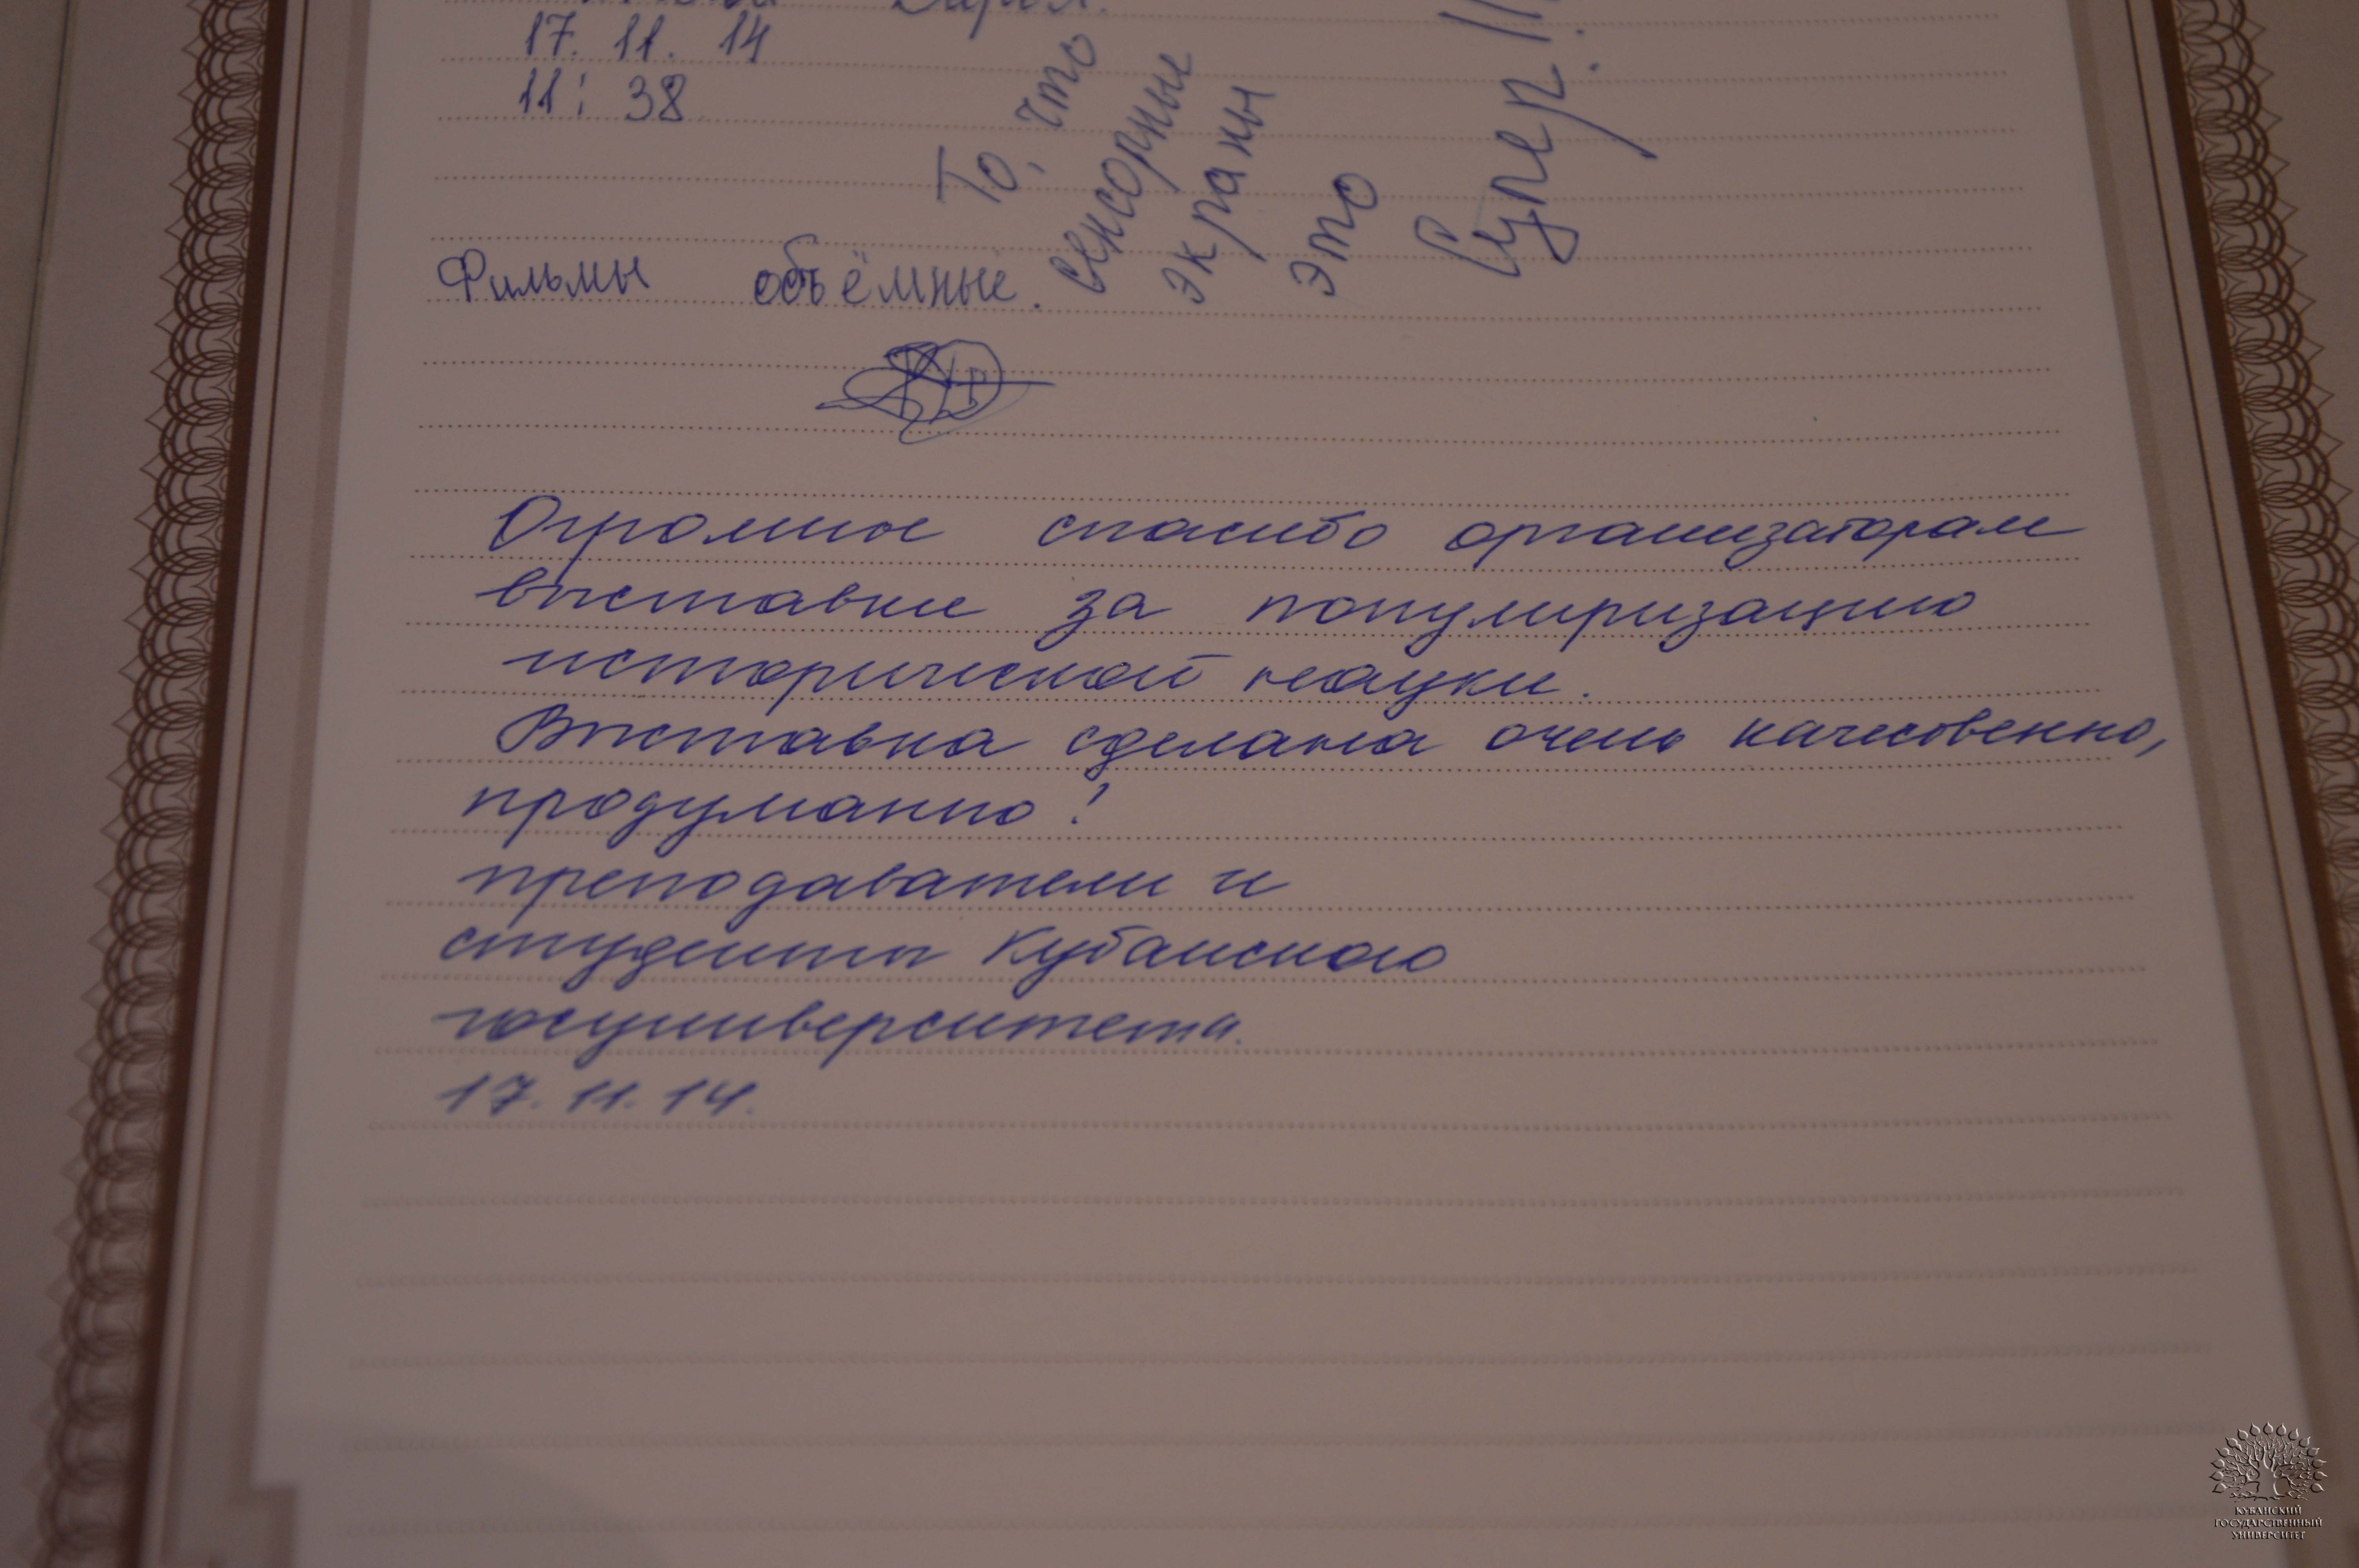 17. 11. 14
11: 38
То, что
сенсорные
экраны
это
Супер!!!
Фильмы объёмные.
Огромное спасибо организаторам
выставки за популяризацию
исторической науки.
Выставка сделана очень качественно,
продуманно!
преподаватели и
студенты Кубанского
госуниверситета.
17. 11. 14.
КУБАНСКИЙ
ГОСУДАРСТВЕННЫЙ
УНИВЕРСИТЕТ